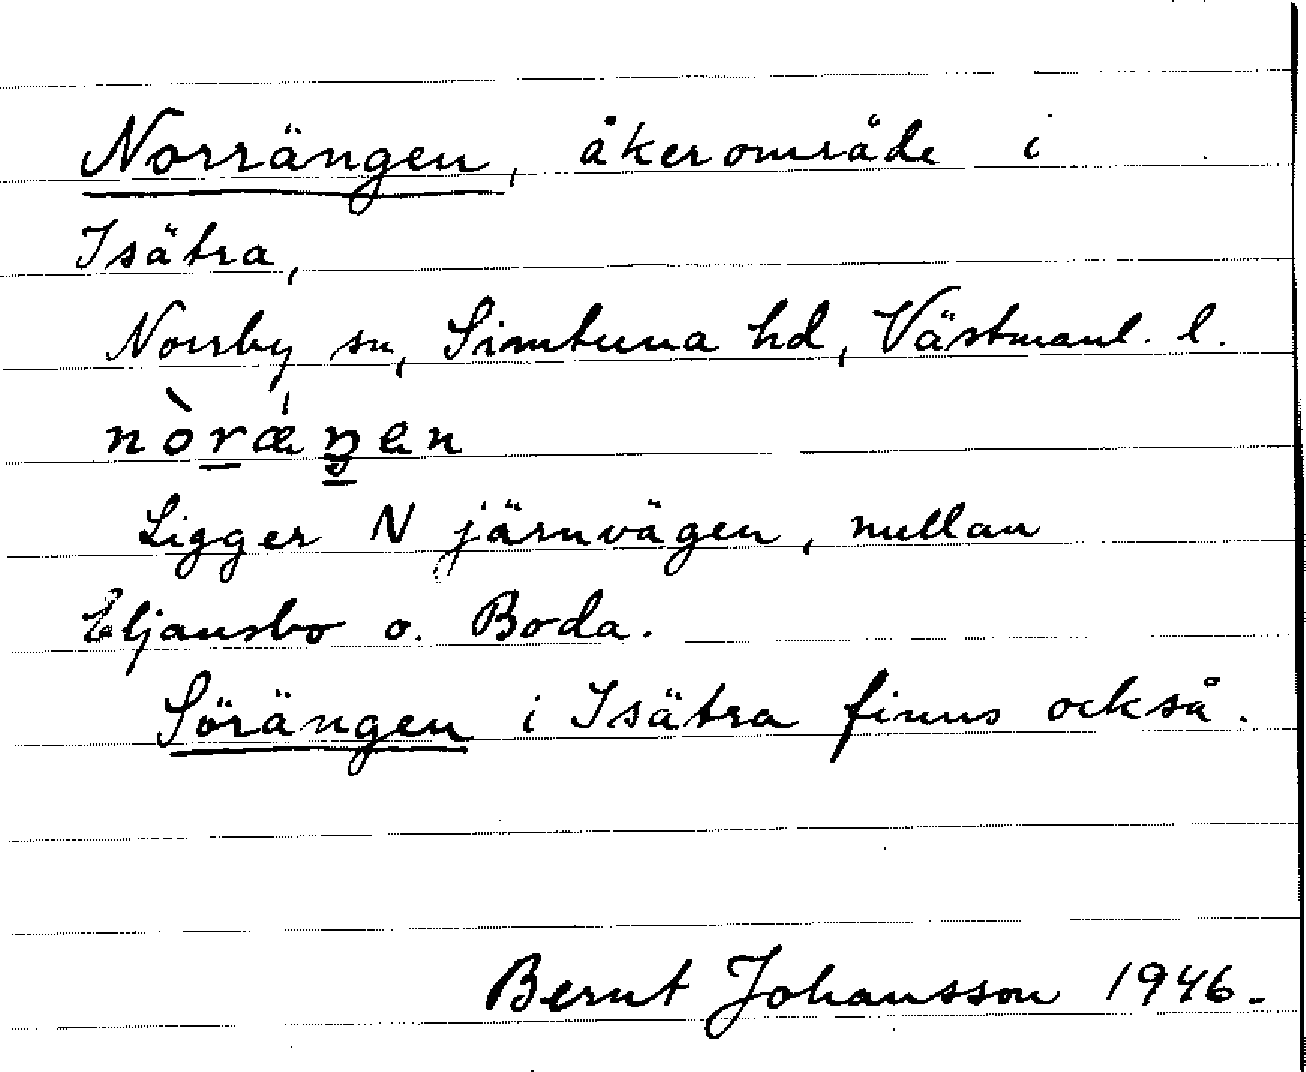 Norrängen, åkerområde i
Isätra,
Norrby sn, Simtuna hd, Västmanl. l.
nòrǽŋen
Ligger N järnvägen, mellan
Eljansbo o. Boda.
Sörängen i Isätra finns också.
Bernt Johansson 1946.